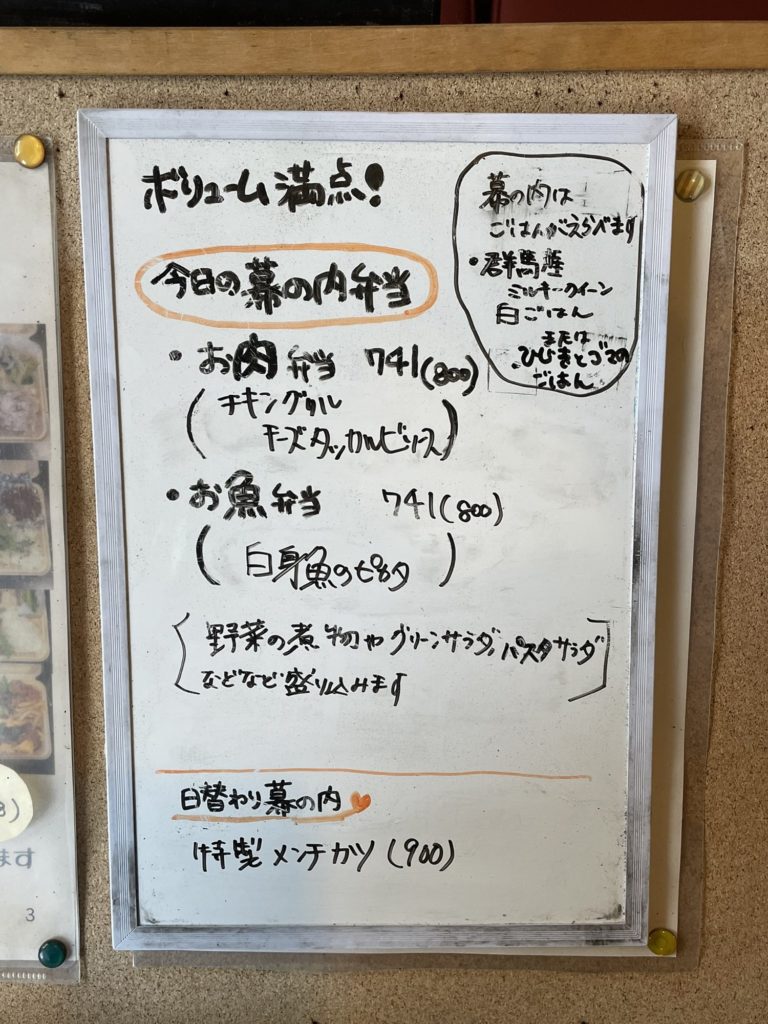 ボリューム満点!
今日の幕の内弁当
・お肉弁当 741(800)
(チキングリル
チーズタッカルビソース)
・お魚弁当 741(800)
(白身魚のピカタ)
[野菜の煮物やグリーンサラダ、パスタサラダ
などなど盛り込みます]
日替わり幕の内
特製メンチカツ(900)
幕の内は
ごはんがえらべます
・群馬産
ミルキークイーン
白ごはん
または
ひじきとゴマの
ごはん
ます
3